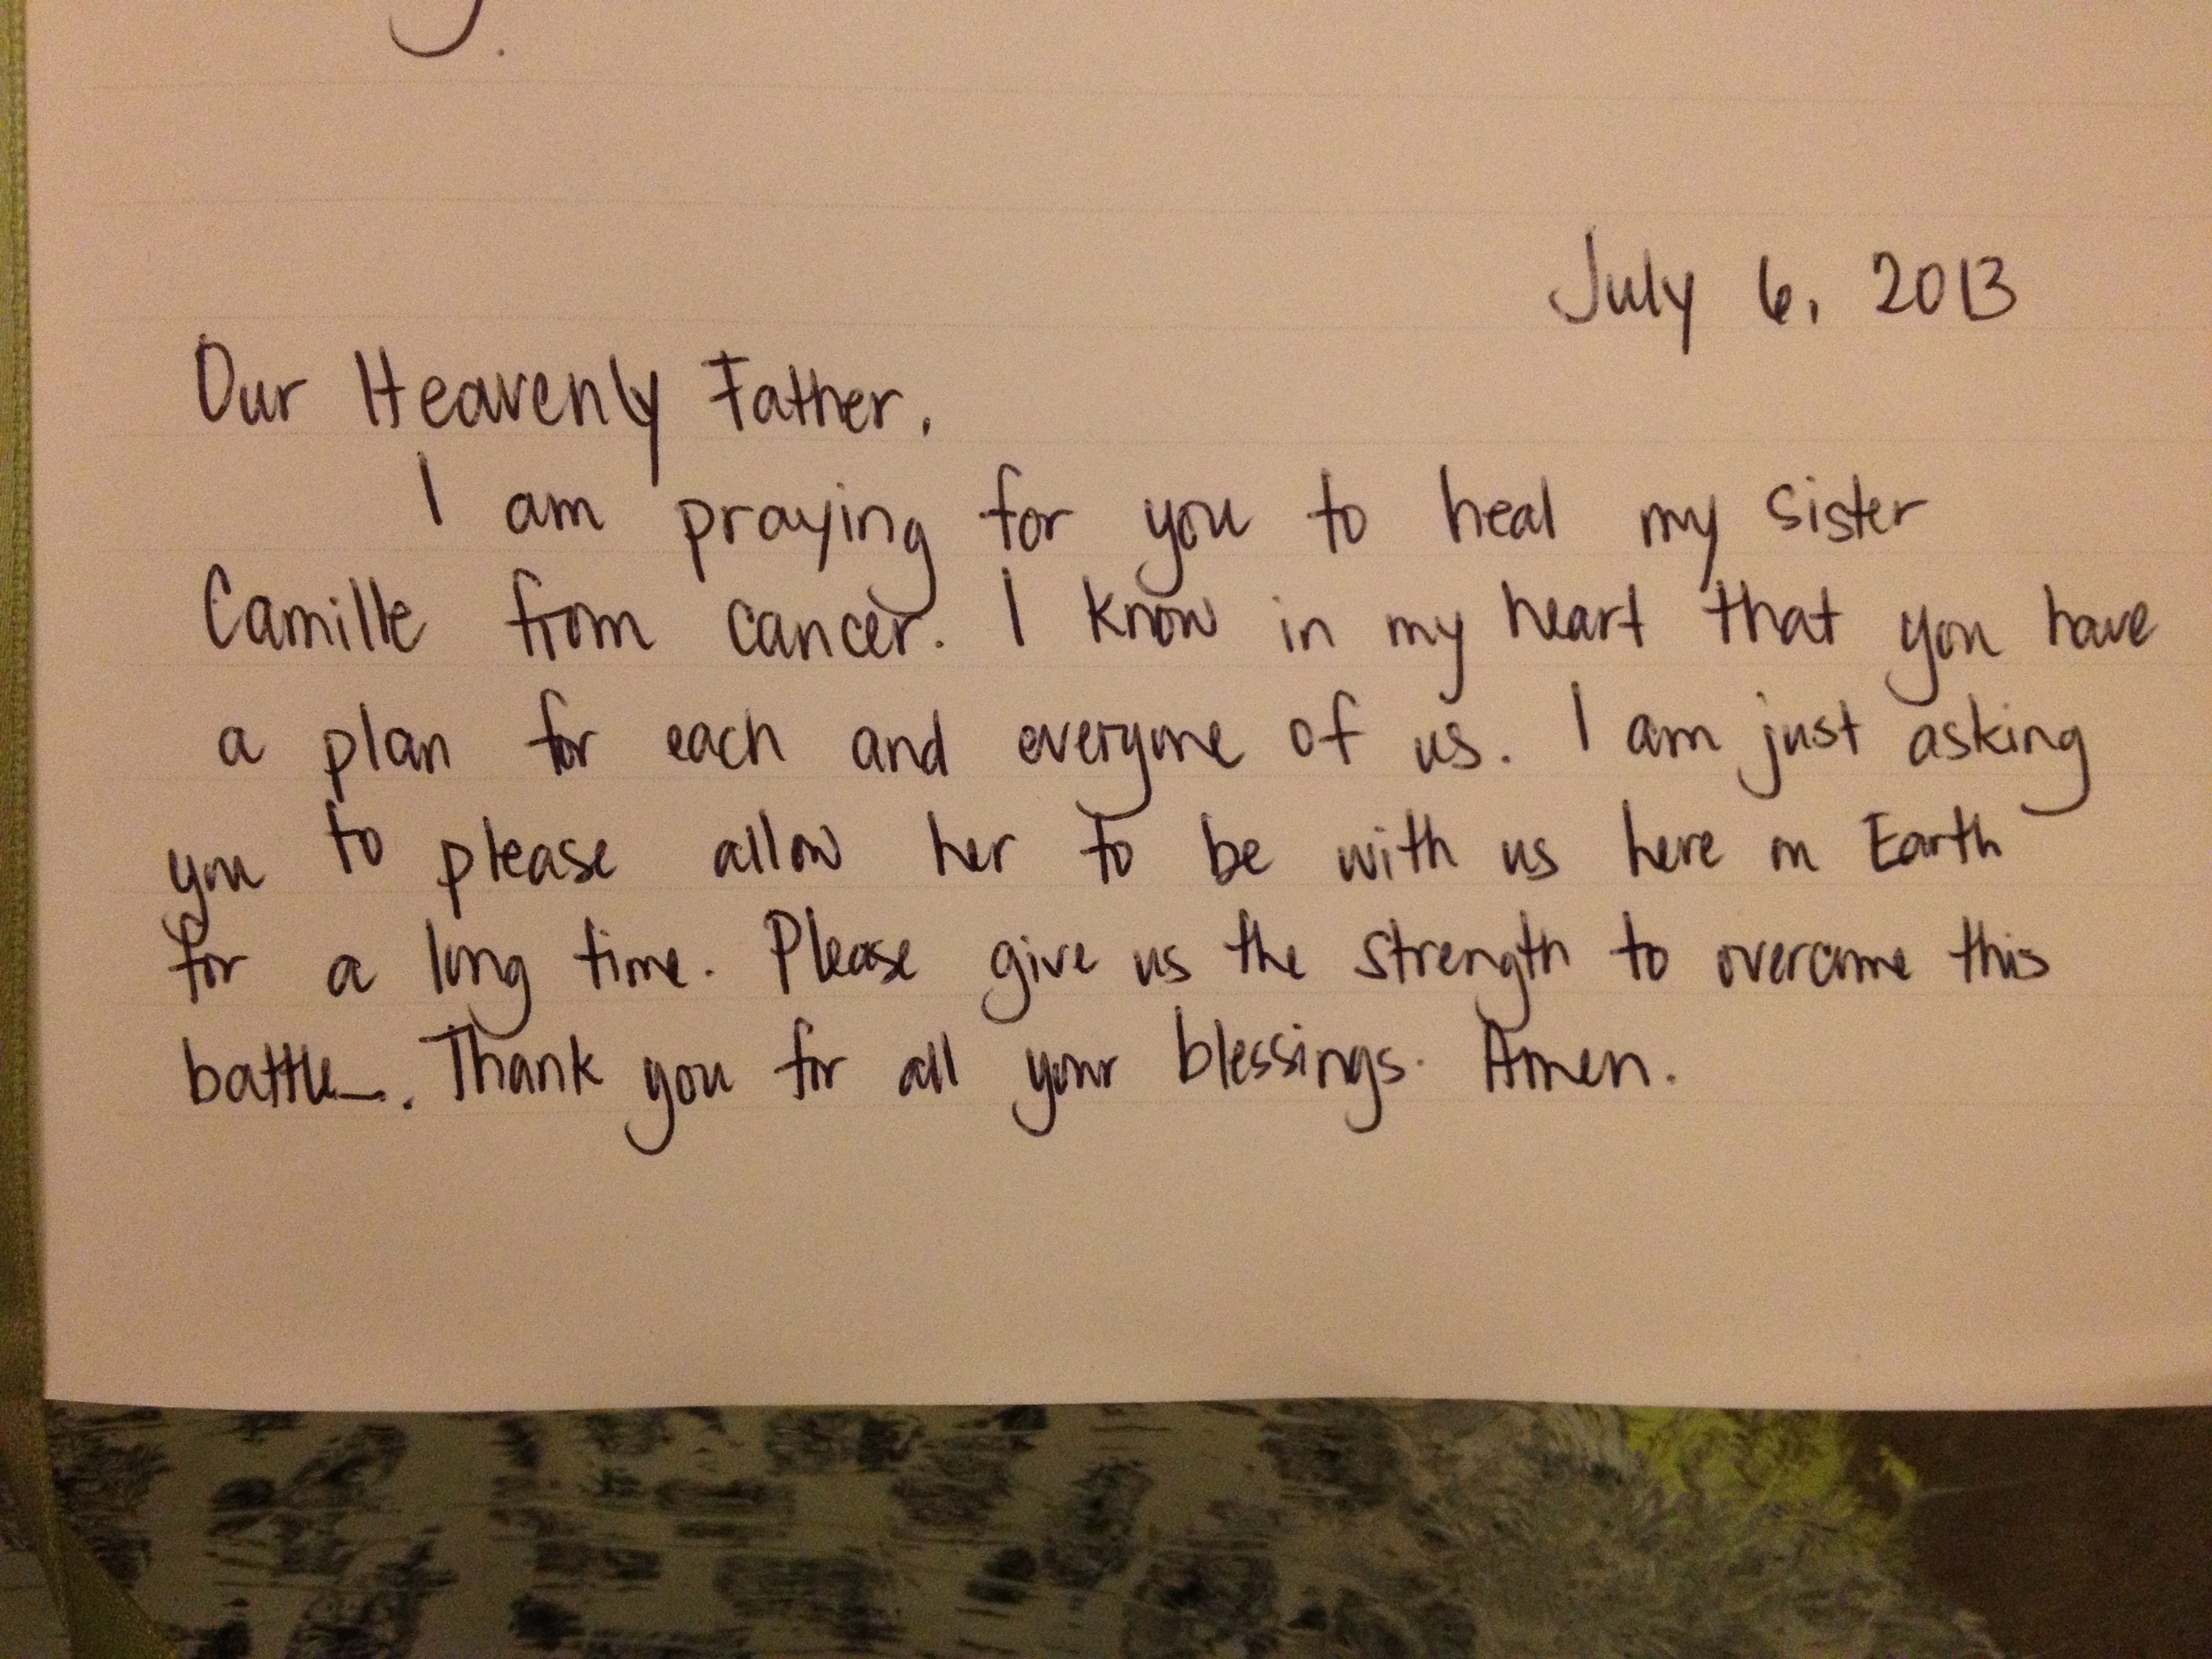 July 6, 2013
Our Heavenly Father,
I am praying for you to heal my sister
Camille from cancer. I know in my heart that you have
a plan for each and everyone of us. I am just asking
you to please allow her to be with us here on Earth
for a long time. Please give us the strength to overcome this
battle. Thank you for all your blessings. Amen.